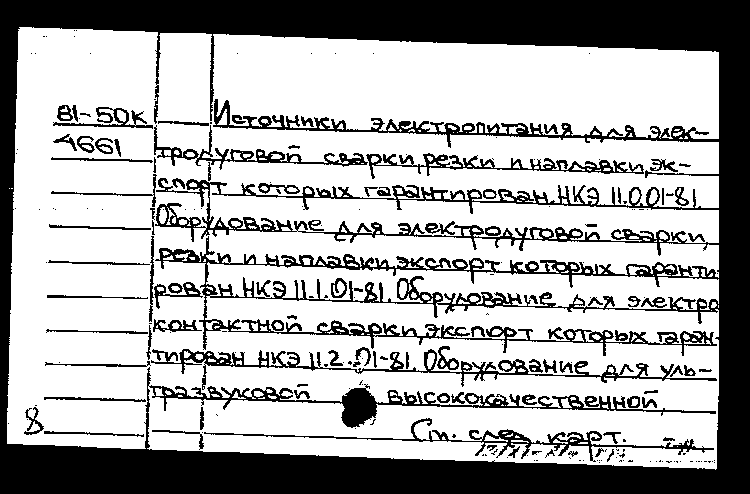 81-50к Источники электропитания для элек-
4661 тродуговой сварки, резки и наплавки, эк-
спорт которых гарантирован. НКЭ 11.0.01-81.
Оборудование для электродуговой сварки,
резки и наплавки, экспорт которых гаранти
рован. НКЭ 11.1.01-81. Оборудование для электро
контактной сварки, экспорт которых гаран-
тирован НКЭ 11.2.01-81. Оборудование для уль-
тразвуковой высококачественной,
8 См. след. карт.